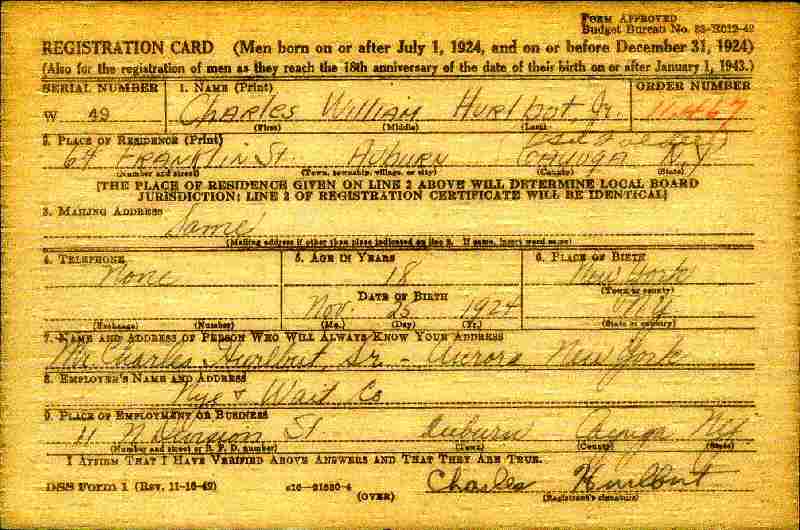 FORM APPROVED
Budget Bureau No. 33-R012-42
REGISTRATION CARD (Men born on or after July 1, 1924, and on or before December 31, 1924)
(Also for the registration of men as they reach the 18th anniversary of the date of their birth on or after January 1, 1943.)
SERIAL NUMBER 1. NAME (Print) ORDER NUMBER
W 49 CHARLES WILLIAM HURLBUT, Jr. 11467
(First) (Middle) (Last)
2. PLACE OF RESIDENCE (Print)
64 FRANKLIN St. AUBURN CAYUGA N.Y
(Number and street) (Town, township, village, or city) (County) (State)
[THE PLACE OF RESIDENCE GIVEN ON LINE 2 ABOVE WILL DETERMINE LOCAL BOARD
JURISDICTION; LINE 2 OF REGISTRATION CERTIFICATE WILL BE IDENTICAL]
3. MAILING ADDRESS
Same
(Mailing address if other than place indicated on line 2. If same, insert word same)
4. TELEPHONE 5. AGE IN YEARS 6. PLACE OF BIRTH
None 18 New York
DATE OF BIRTH (Town or county)
Nov. 25 1924 NY
(Exchange) (Number) (Mo.) (Day) (Yr.) (State or country)
7. NAME AND ADDRESS OF PERSON WHO WILL ALWAYS KNOW YOUR ADDRESS
Mr. Charles Hurlbut, Sr. - Aurora, New York
8. EMPLOYER'S NAME AND ADDRESS
Nye & Wait Co
9. PLACE OF EMPLOYMENT OR BUSINESS
11 N Division St Auburn Cayuga NY
(Number and street or R. F. D. number) (Town) (County) (State)
I AFFIRM THAT I HAVE VERIFIED ABOVE ANSWERS AND THAT THEY ARE TRUE.
DSS Form 1 (Rev. 11-16-42) 16-21630-4 Charles Hurlbut
(OVER) (Registrant's signature)